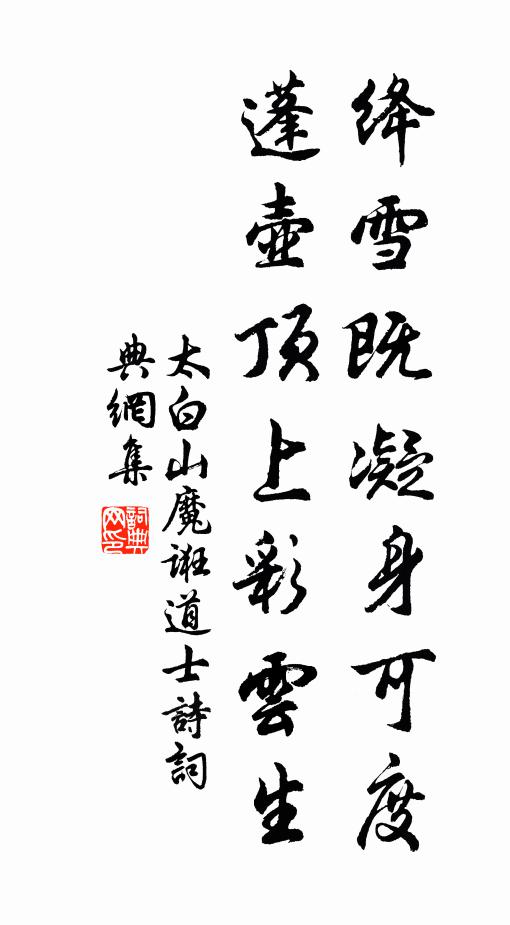 絳雪既凝身可度
蓬壺頂上彩雲生
太白山魔誑道士詩詞
典網集
詞典
网印